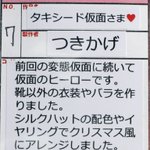 NO.
7
タキシード仮面さま♥
製作者
つきかげ
コ
前回の変態仮面に続いて
仮面のヒーローです。
靴以外の衣装やバラを
作りました。
シルクハットの配色やイ
ヤリングでクリスマス風
にアレンジしました。